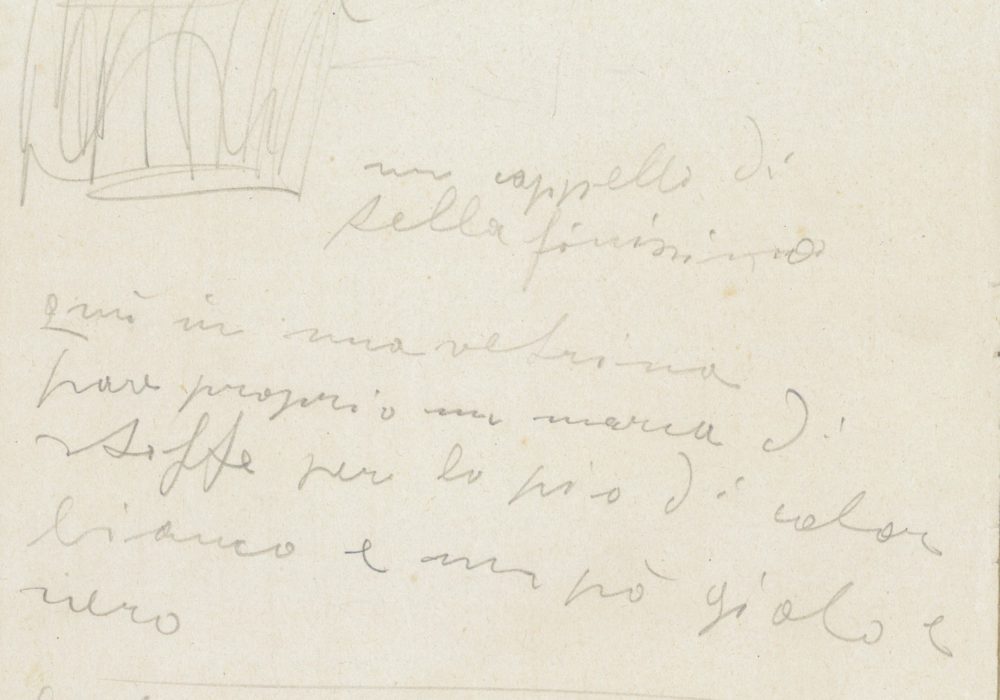 un cappello di
sella finissimo
quì in una vetrina
pare proprio un marea di
stoffe per lo pio di color
bianco e un pò gialo e
nero